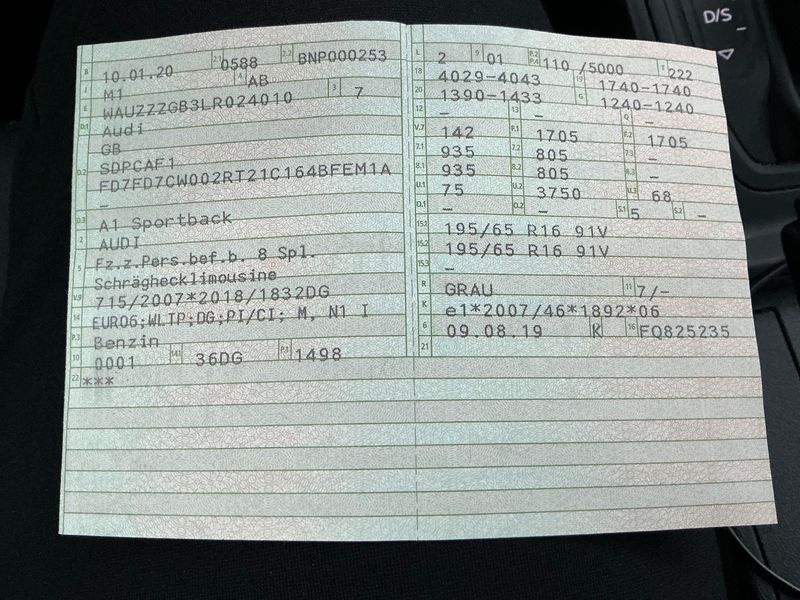 B 10.01.20 2.1 0588 2.2 BNP000253
J M1 4 AB
E WAUZZZGB3LR024010 3 7
D.1 Audi
GB
D.2 SDPCAF1
FD7FD7CW002RT21C164BFEM1A
–
D.3 A1 Sportback
2 AUDI
5 Fz.z.Pers.bef.b. 8 Spl.
Schräghecklimousine
V.9 715/2007*2018/1832DG
14 EURO6;WLTP;DG;PI/CI; M, N1 I
P.3 Benzin
10 0001 14.1 36DG P.1 1498
22 ***
L 2 9 01 P.2 P.4 110 /5000 T 222
18 4029-4043 19 1740-1740
20 1390-1433 G 1240-1240
12 – 13 – Q –
V.7 142 F.1 1705 F.2 1705
7.1 935 7.2 805 7.3 –
8.1 935 8.2 805 8.3 –
U.1 75 U.2 3750 U.3 68
O.1 – O.2 – S.1 5 S.2 –
15.1 195/65 R16 91V
15.2 195/65 R16 91V
15.3 –
R GRAU 11 7/-
K e1*2007/46*1892*06
6 09.08.19 K 16 FQ825235
21
D/S